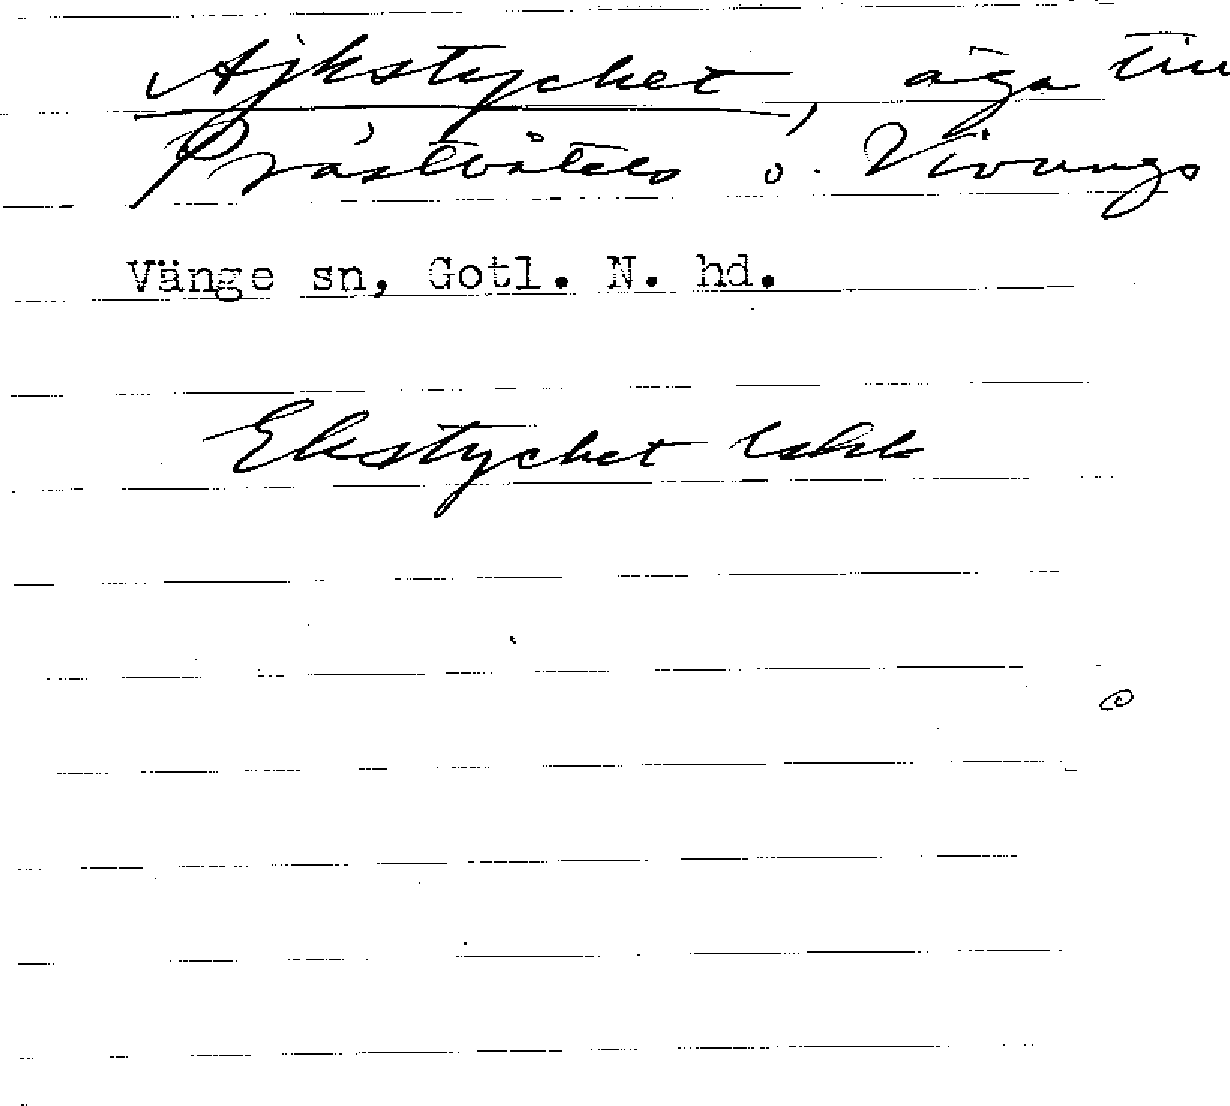 Ajkstycket, äga till
Prästvätes o. Vivungs
Vänge sn, Gotl. N. hd.
Ekstycket Lskk